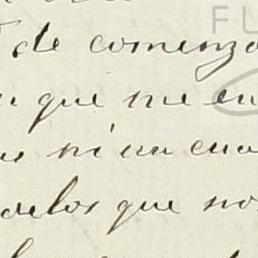 FL
de comenzo
que me en
ni un cua
delos que no